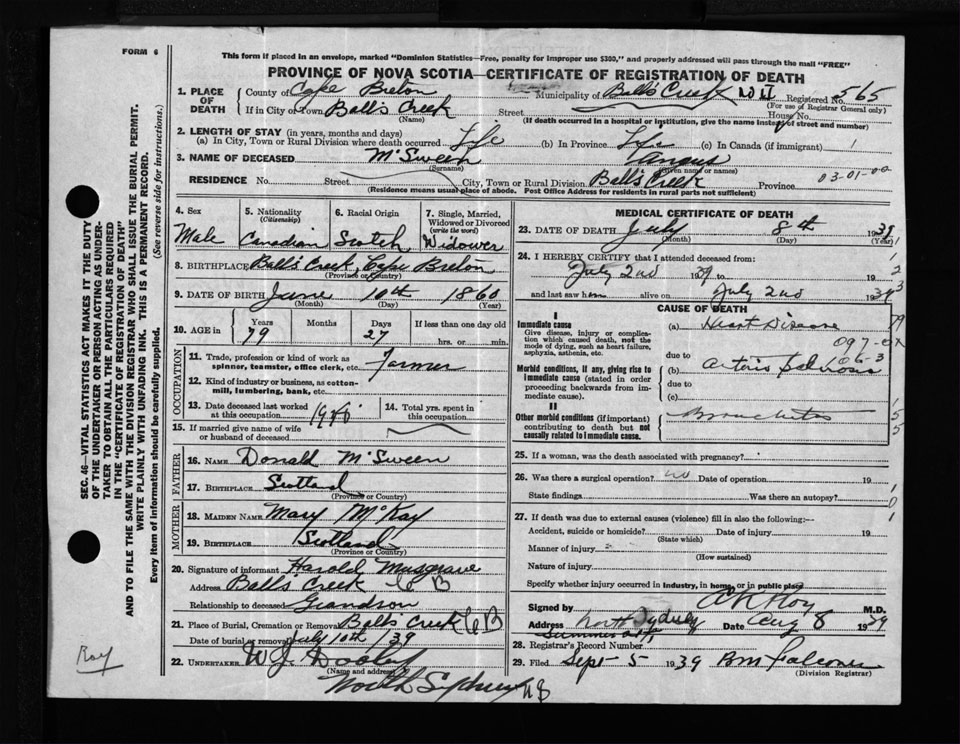 FORM 6
This form if placed in an envelope, marked "Dominion Statistics—Free, penalty for improper use $300," and properly addressed will pass through the mail "FREE"
PROVINCE OF NOVA SCOTIA—CERTIFICATE OF REGISTRATION OF DEATH
1. PLACE OF DEATH
County of Cape Breton Municipality of Ball's Creek Registered No. 565
(For use of Registrar General only)
If in City or Town Ball's Creek Street House No.
(Name) (If death occurred in a hospital or institution, give the name instead of street and number)
2. LENGTH OF STAY (in years, months and days)
(a) In City, Town or Rural Division where death occurred Life (b) In Province Life (c) In Canada (if immigrant)
3. NAME OF DECEASED McSween Angus
(Surname) (Given name or names)
RESIDENCE No. Street City, Town or Rural Division Ball's Creek Province 03-01-00
(Residence means usual place of abode. Post Office Address for residents in rural parts not sufficient)
4. Sex 5. Nationality (Citizenship) 6. Racial Origin 7. Single, Married, Widowed or Divorced (write the word)
Male Canadian Scotch Widower
8. BIRTHPLACE Ball's Creek, Cape Breton
(Province or Country)
9. DATE OF BIRTH June 10th 1860
(Month) (Day) (Year)
10. AGE in Years Months Days If less than one day old
79 27 hrs. or min.
OCCUPATION
11. Trade, profession or kind of work as spinner, teamster, office clerk, etc. Farmer
12. Kind of industry or business, as cotton-mill, lumbering, bank, etc.
13. Date deceased last worked at this occupation
14. Total yrs. spent in this occupation
15. If married give name of wife or husband of deceased
FATHER
16. NAME Donald McSween
17. BIRTHPLACE Scotland
(Province or Country)
MOTHER
18. MAIDEN NAME Mary McKay
19. BIRTHPLACE Scotland
(Province or Country)
20. Signature of informant Harold Musgrave
Address Balls Creek C B
Relationship to deceased Grandson
21. Place of Burial, Cremation or Removal Balls Creek C B
Date of burial or removal July 10th 139
22. UNDERTAKER W J Dooley
(Name and address)
North Sydney NS
MEDICAL CERTIFICATE OF DEATH
23. DATE OF DEATH July 8th 1939
(Month) (Day) (Year)
24. I HEREBY CERTIFY that I attended deceased from:
July 2nd 1939 to 19
and last saw him alive on July 2nd 1939
CAUSE OF DEATH
I
Immediate cause
Give disease, injury or complication which caused death, not the mode of dying, such as heart failure, asphyxia, asthenia, etc.
(a) Heart Disease
due to
Morbid conditions, if any, giving rise to immediate cause (stated in order proceeding backwards from immediate cause).
(b) Arterio Sclerosis
due to
(c)
II
Other morbid conditions (if important) contributing to death but not causally related to immediate cause.
Bronchitis
25. If a woman, was the death associated with pregnancy?
26. Was there a surgical operation? no Date of operation 19
State findings Was there an autopsy?
27. If death was due to external causes (violence) fill in also the following:—
Accident, suicide or homicide? Date of injury 19
(State which)
Manner of injury
(How sustained)
Nature of injury
Specify whether injury occurred in industry, in home, or in public place
Signed by M.D.
Address North Sydney Date Aug 8 1939
28. Registrar's Record Number
29. Filed Sept 5 1939
(Division Registrar)
SEC. 46—VITAL STATISTICS ACT MAKES IT THE DUTY
OF THE UNDERTAKER OR PERSON ACTING AS UNDER-
TAKER TO OBTAIN ALL THE PARTICULARS REQUIRED
IN THE "CERTIFICATE OF REGISTRATION OF DEATH"
AND TO FILE THE SAME WITH THE DIVISION REGISTRAR WHO SHALL ISSUE THE BURIAL PERMIT.
WRITE PLAINLY WITH UNFADING INK. THIS IS A PERMANENT RECORD.
Every item of information should be carefully supplied. (See reverse side for instructions.)
Roy